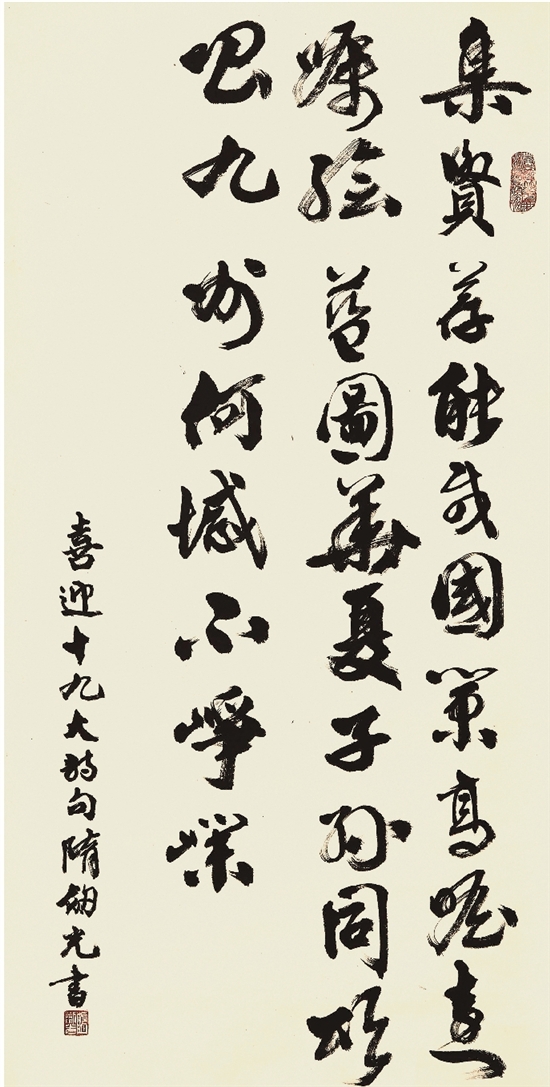 集賢荐能成國策高瞻遠
矚繪蓝圖華夏子孫同
九州何憾不崢嶸
喜迎十九大詩句隋光書